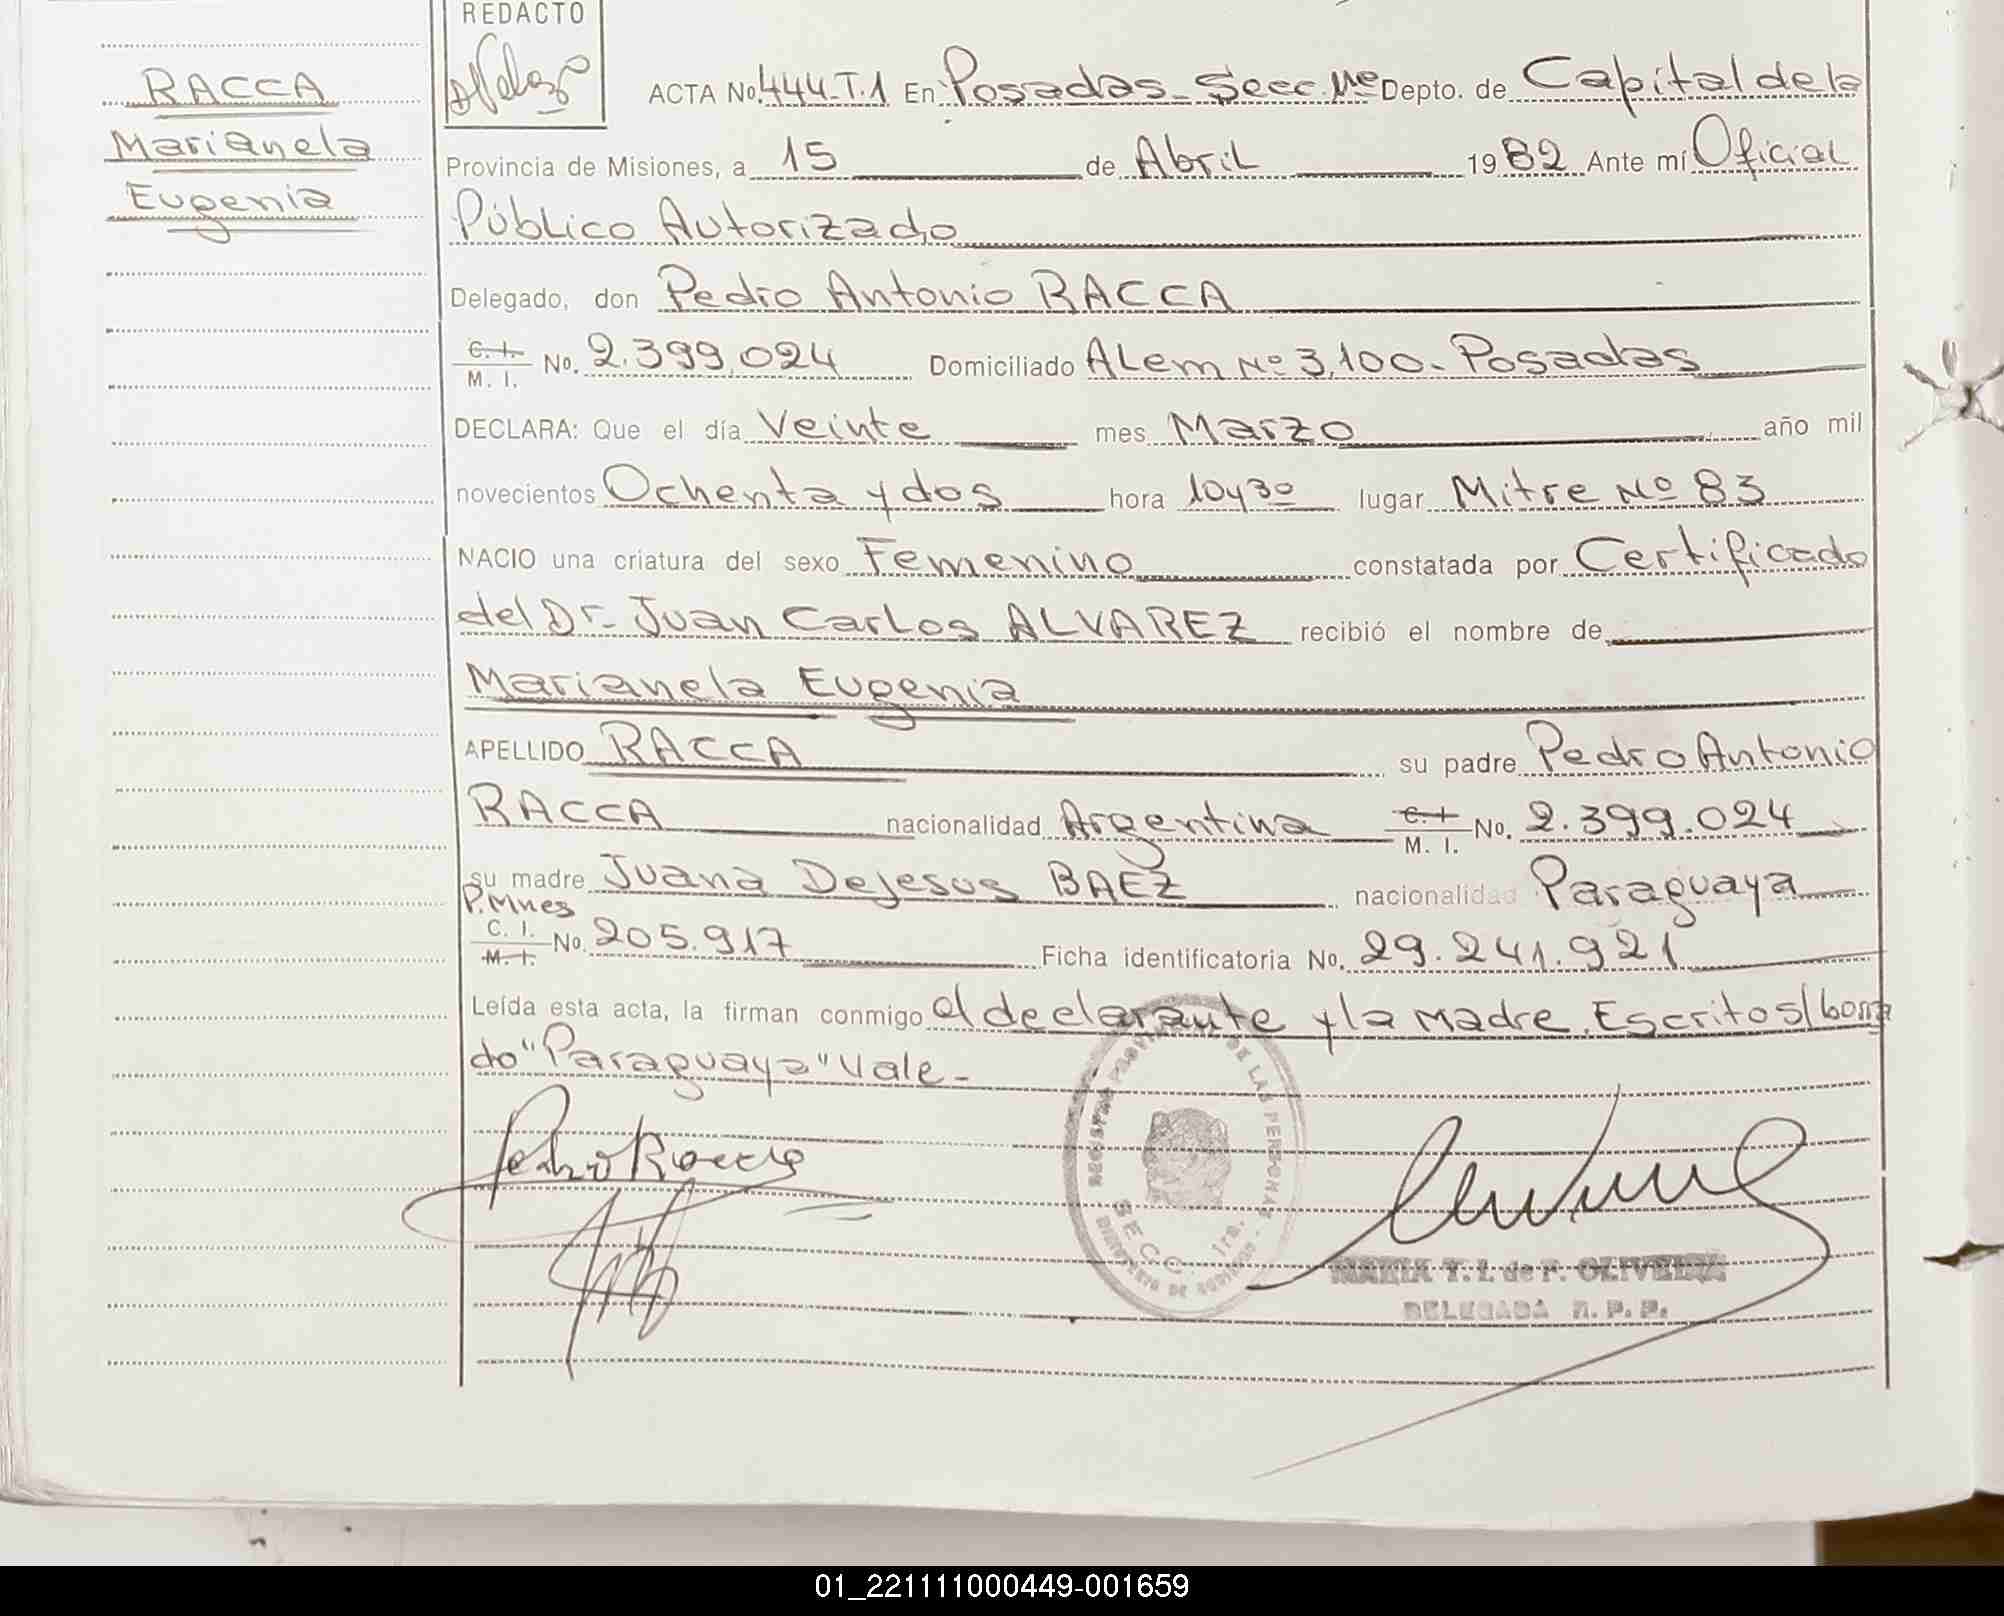 REDACTO
RACCA
Marianela
Eugenia
ACTA No. 444-T.1 En Posadas-Secc. 1ra Depto. de Capital de la
Provincia de Misiones, a 15 de Abril 1982 Ante mí Oficial
Público Autorizado
Delegado, don Pedro Antonio RACCA
C. I.
M. I. No. 2.399.024 Domiciliado Alem Nº 3.100- Posadas
DECLARA: Que el día Veinte mes Marzo año mil
novecientos Ochenta y dos hora 10y30 lugar Mitre Nº 83
NACIO una criatura del sexo Femenino constatada por Certificado
del Dr. Juan Carlos ALVAREZ recibió el nombre de
Marianela Eugenia
APELLIDO RACCA su padre Pedro Antonio
RACCA nacionalidad Argentina C. I. M. I. No. 2.399.024
su madre Juana Dejesus BAEZ nacionalidad Paraguaya
P. Mnes
C. I. M. I. No. 205.917 Ficha identificatoria No. 29.241.921
Leída esta acta, la firman conmigo el declarante y la madre. Escrito s/borra
do "Paraguaya" Vale-
Pedro Racca
REGISTRO PROV. DE LAS PERSONAS
SECC. 1ra.
MARIA T. I. de F. OLIVEIRA
DELEGADA R. P. P.
01_221111000449-001659